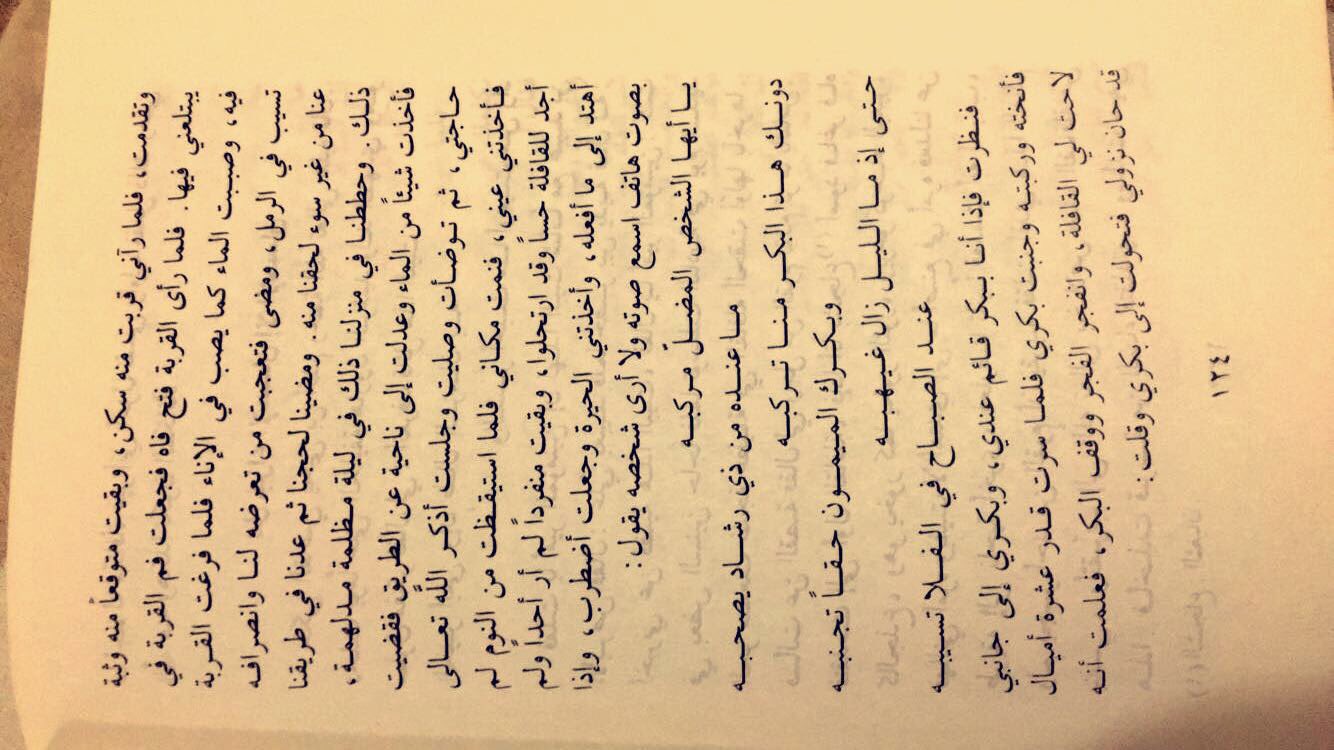 وتقدمت، فلما رآني قربت منه سكن، وبقيت متوقعاً منه وثبة
يبتلعني فيها. فلما رأى القربة فتح فاه فجعلت فم القربة في
فيه، وصببت الماء كما يصب في الإناء فلما فرغت القربة
تسيب في الرمل، ومضى فتعجبت من تعرضه لنا وانصرافه
عنا من غير سوء لحقنا منه. ومضينا لحجنا ثم عدنا في طريقنا
ذلك. وحططنا في منزلنا ذلك في ليلة مظلمة مدلهمة،
فأخذت شيئاً من الماء وعدلت إلى ناحية عن الطريق فقضيت
حاجتي، ثم توضأت وصليت وجلست أذكر الله تعالى
فأخذتني عيني، فنمت مكاني فلما استيقظت من النوم لم
أجد للقافلة حساً وقد ارتحلوا، وبقيت منفرداً لم أر أحداً ولم
أهتد إلى ما أفعله، وأخذتني الحيرة وجعلت أضطرب، وإذا
بصوت هاتف اسمع صوته ولا أرى شخصه يقول:
يا أيها الشخص المضلّ مركبه
ما عنده من ذي رشاد يصحبه
دونك هذا البكر منا تركبه
وبكرك الميمون حقاً تجنبه
حتى إذ ما الليل زال غيهبه
عند الصباح في الفلا تسيبه
فنظرت فإذا أنا ببكر قائم عندي، وبكري إلى جانبي
فأنخته وركبته وجنبت بكري فلما سرت قدر عشرة أميال
لاحت لي القافلة، وانفجر الفجر ووقف البكر، فعلمت أنه
قد حان نزولي فتحولت إلى بكري وقلت:
١٢٤